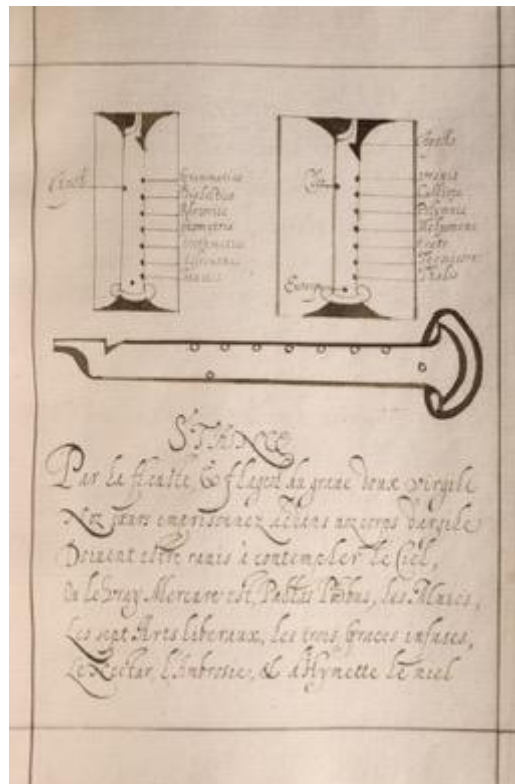 Christ
Grammatica
Dialectica
Rhetorica
Geometria
Arithmetica
Musica
Apollo
Clio
Urania
Calliope
Polymnia
Melpomene
Erato
Terpsicore
Thalia
Euterpe
STANCE
Par la fleutte & flageol du graue doux virgile
Noz cœurs emprisonnez dedans noz corps d'argile
Doiuent estre rauis à contempler le Ciel,
Ou le vray Mercure est, Pallas Phœbus, les Muses,
Les sept Arts liberaux, les trois Graces infuses,
Le Nectar, l'Ambrosie, & d'Hymette le miel